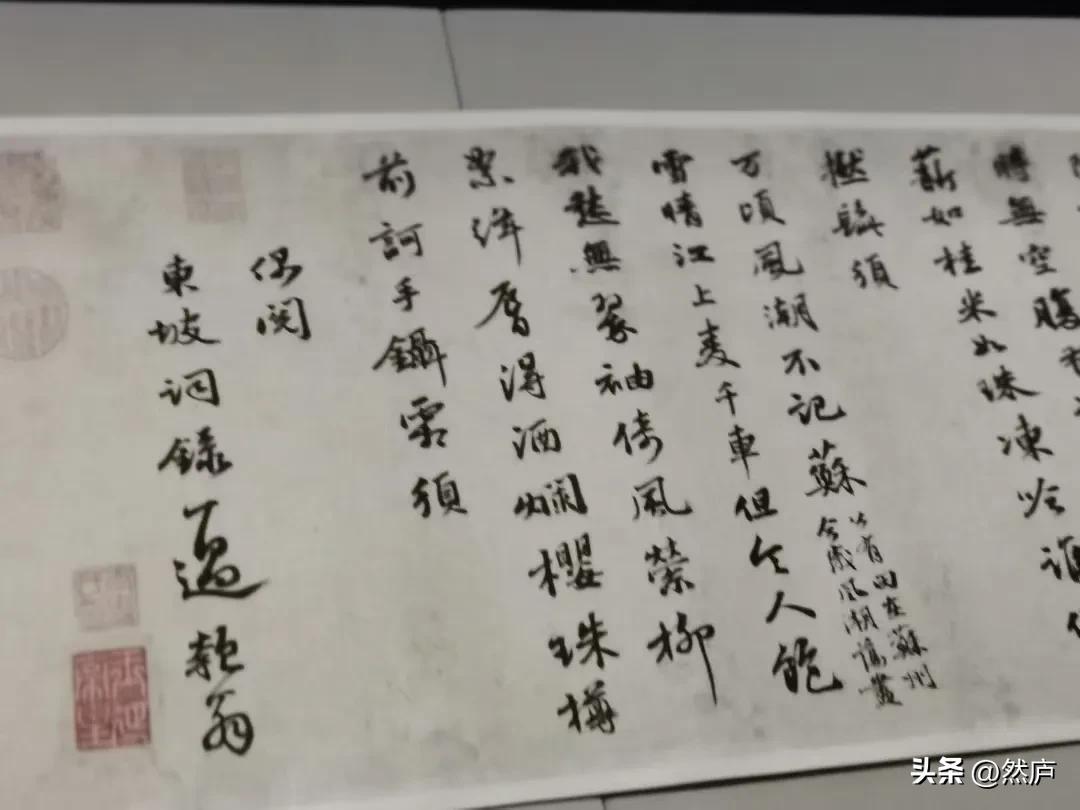 無空腹
薪如桂米如珠凍吟誰
撚髭須
万頃風潮不記蘇
公有田在蘇州
今歲風潮蕩盡
雪晴江上麦千車但令人飽
我愁無翠袖倚風縈柳
絮絳唇得酒爛櫻珠樽
前訶手鑷霜須
偶閱
東坡詞錄過 翁
头条 @然庐